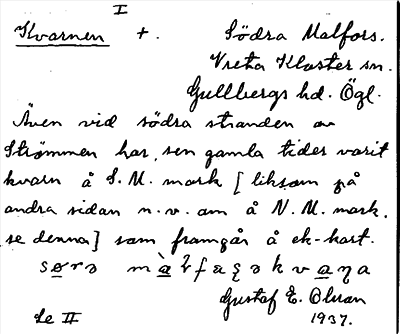 I
Kvarnen +. Södra Malfors.
Vreta Kloster sn.
Gullbergs hd. Ögl.
Även vid södra stranden av
Strömmen har, sen gamla tider varit
kvarn å S. M. mark [liksom på
andra sidan n.v. om å N. M. mark.
se denna] som framgår å ek-kart.
Gustaf E. Olson
Se II 1937.